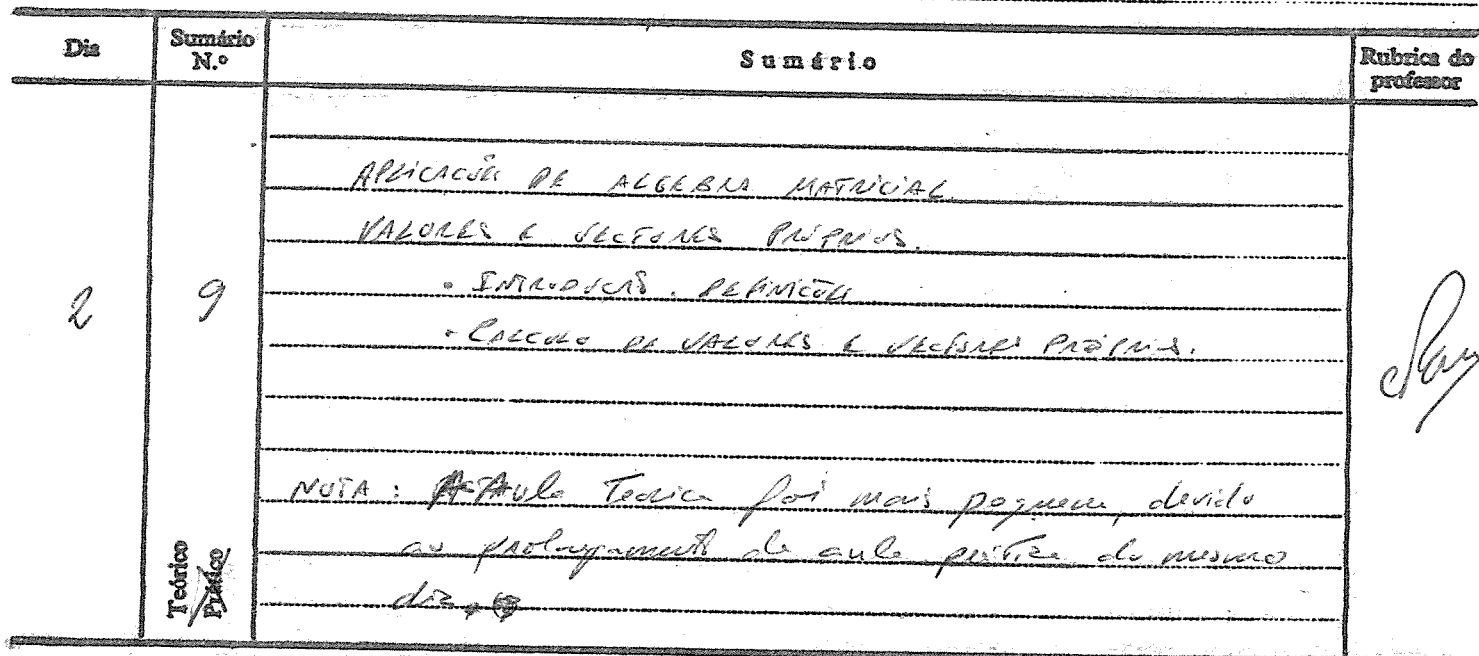 Dia
Sumário N.º
Sumário
Rubrica do professor
2
9
APLICAÇÕES DE ALGEBRA MATRICIAL
VALORES E VECTORES PRÓPRIOS.
• INTRODUÇÃO. DEFINIÇÕES
• CALCULO DE VALORES E VECTORES PRÓPRIOS.
NOTA: A Aula Teorica foi mais pequena, devido
ao prolongamento da aula prática do mesmo
dia.
Teórico
Prático